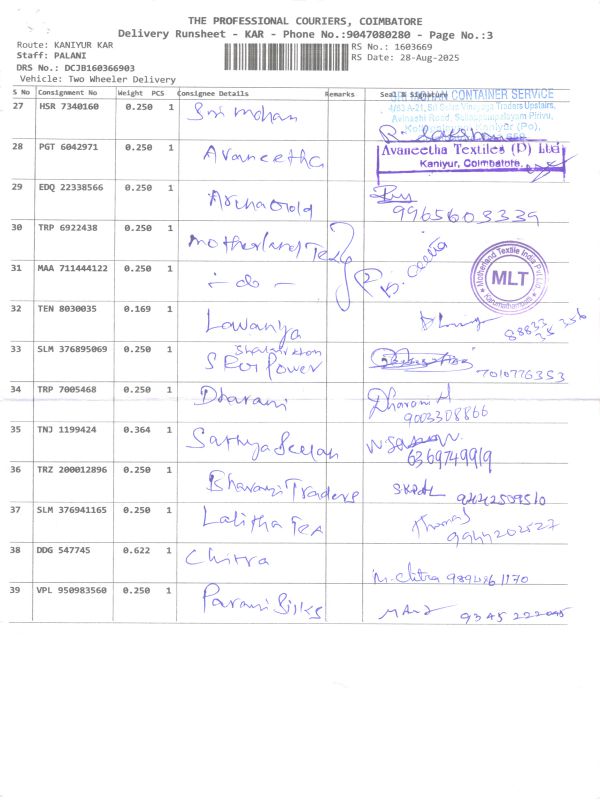 THE PROFESSIONAL COURIERS, COIMBATORE
Delivery Runsheet - KAR - Phone No.:9047080280 - Page No.:3
Route: KANIYUR KAR
RS No.: 1603669
Staff: PALANI
RS Date: 28-Aug-2025
DRS No.: DCJB160366903
Vehicle: Two Wheeler Delivery
S No Consignment No Weight PCS Consignee Details Remarks Seal & Signature
CONTAINER SERVICE
27 HSR 7340160 0.250 1 Sri mohan
28 PGT 6042971 0.250 1 Avaneetha
Avaneetha Textiles (P) Ltd
Kaniyur, Coimbatore.
29 EDQ 22338566 0.250 1
9965603339
30 TRP 6922438 0.250 1 Motherland Tex
31 MAA 711444122 0.250 1 - do -
Motherland Textile India Pvt Ltd
MLT
32 TEN 8030035 0.169 1 Lawanya
33 SLM 376895069 0.250 1 Power
7010776353
34 TRP 7005468 0.250 1 Dharani Dharani M
9003308866
35 TNJ 1199424 0.364 1 Sathyaseelan
6369749919
36 TRZ 200012896 0.250 1 Bharani Traders 9442509510
37 SLM 376941165 0.250 1 Lalitha Tex
9944202527
38 DDG 547745 0.622 1 Chitra
M. Chitra
39 VPL 950983560 0.250 1 Parani Silks